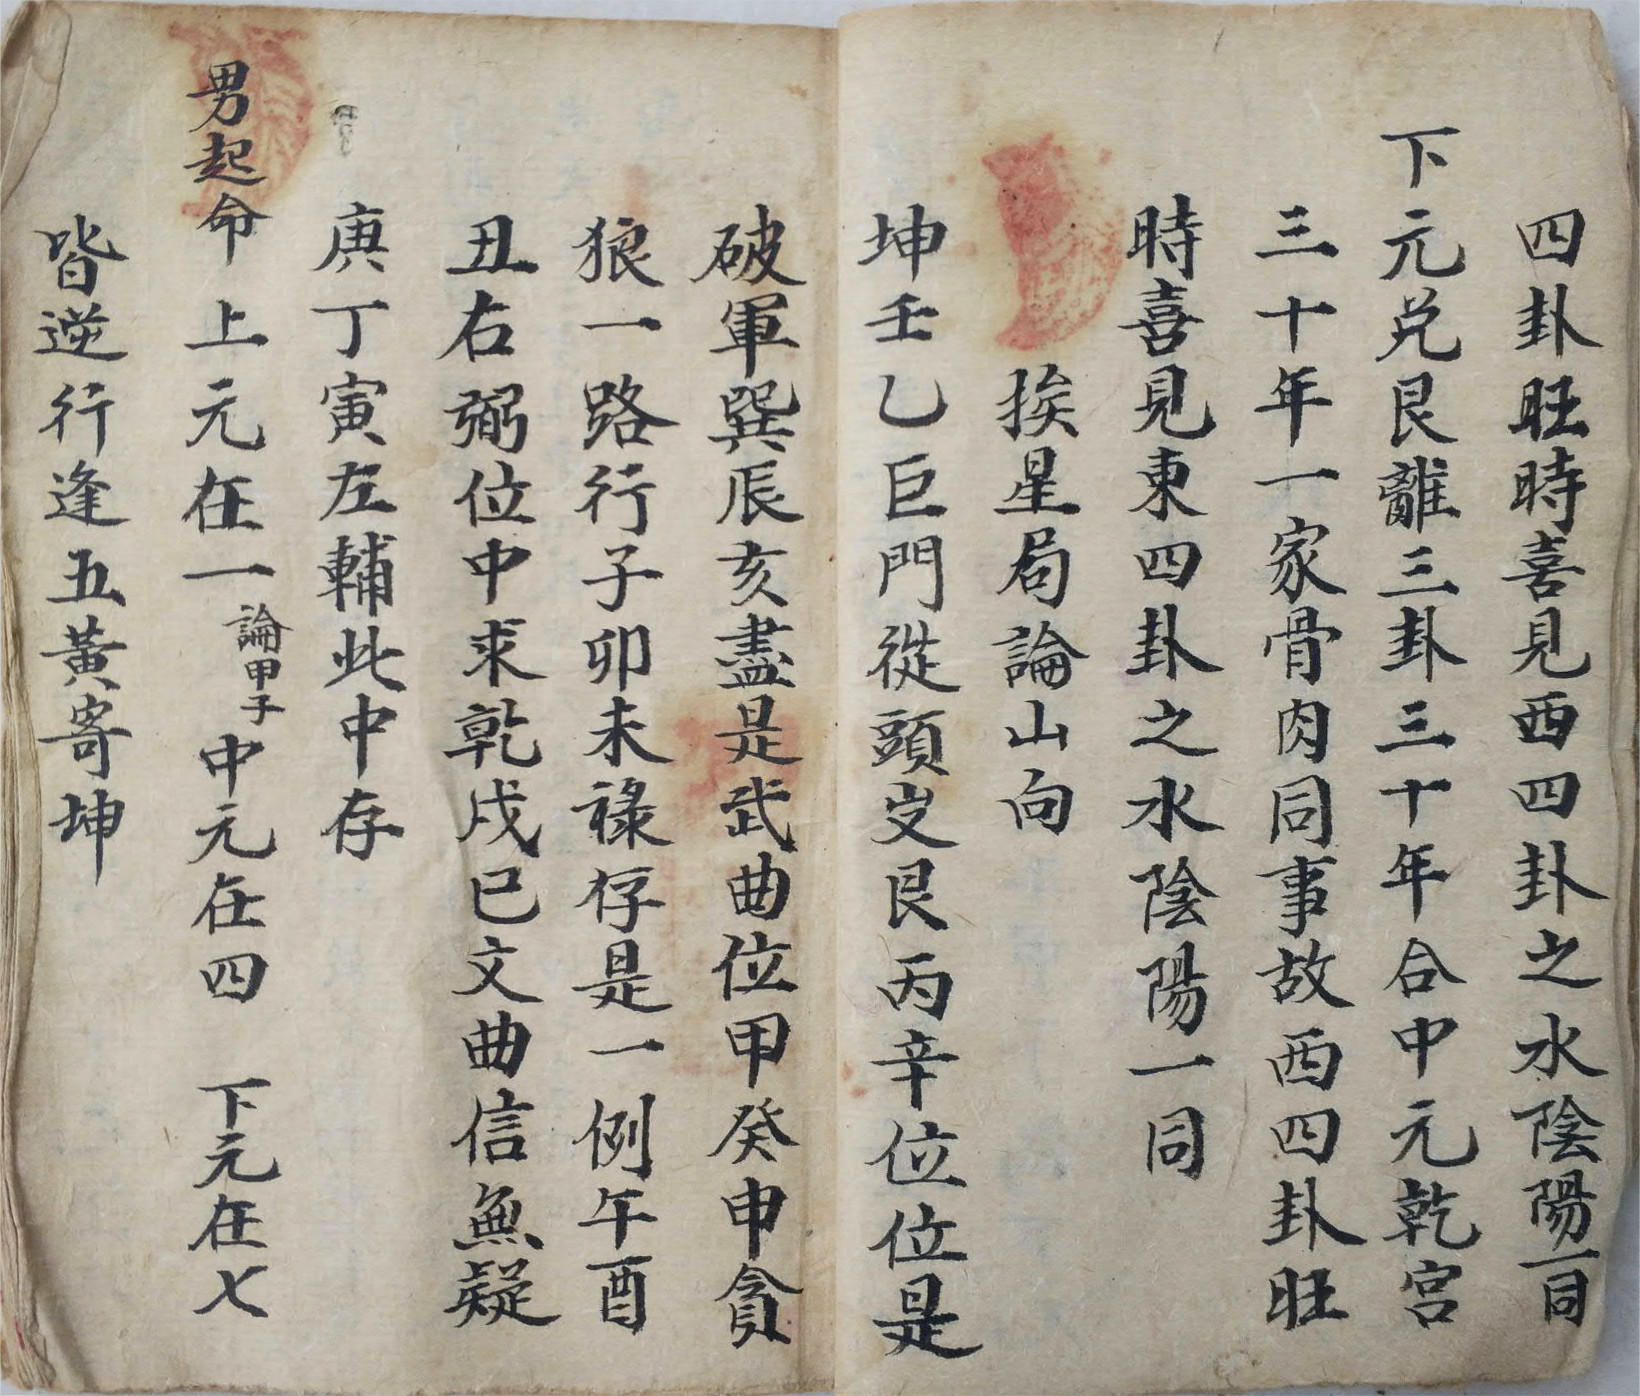 四卦旺時喜見西四卦之水陰陽一同
下元兌艮離三卦三十年合中元乾宮
三十年一家骨肉同事故西四卦旺
時喜見東四卦之水陰陽一同
挨星局論山向
坤壬乙巨門從頭岁艮丙辛位位是
破軍巽辰亥盡是武曲位甲癸申貪
狼一路行子卯未祿存是一例午酉
丑右弼位中求乾戌巳文曲信無疑
庚丁寅左輔此中存
男起命 上元在一論甲子中元在四 下元在七
皆逆行逢五黃寄坤